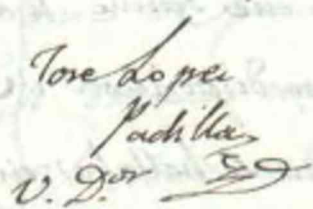 Jose Lopez
Padilla
V. D.or